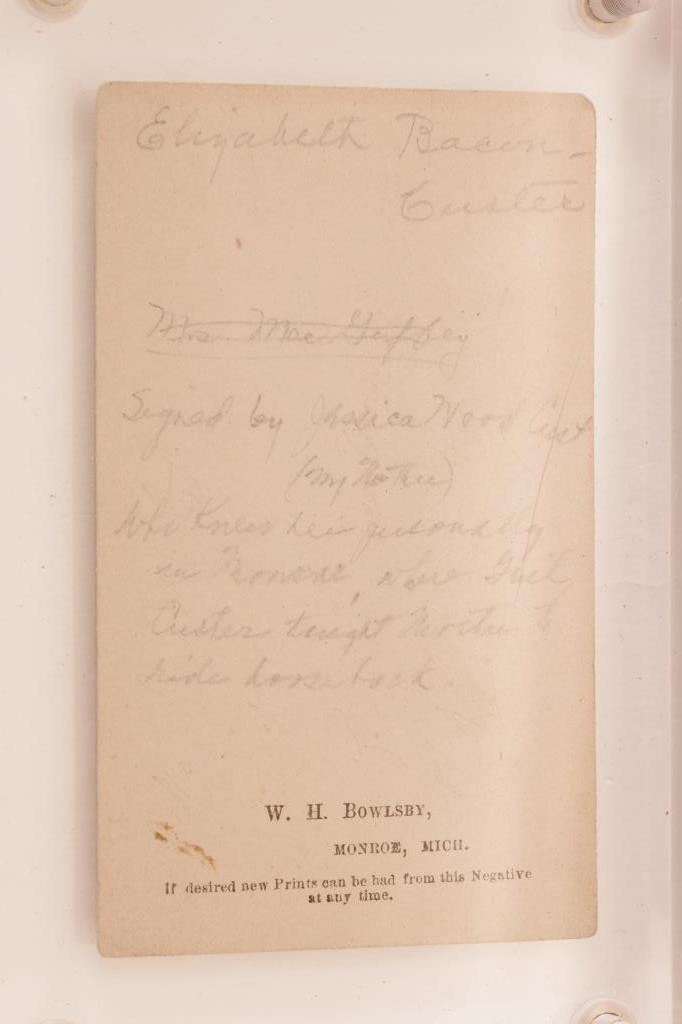 Elizabeth Bacon-
Custer
Mrs. Mac
Signed by Jessica Wood
(my Mother)
Who knew her personally
in Monroe, where
Custer taught Mother to
ride horseback.
W. H. BOWLSBY,
MONROE, MICH.
If desired new Prints can be had from this Negative
at any time.